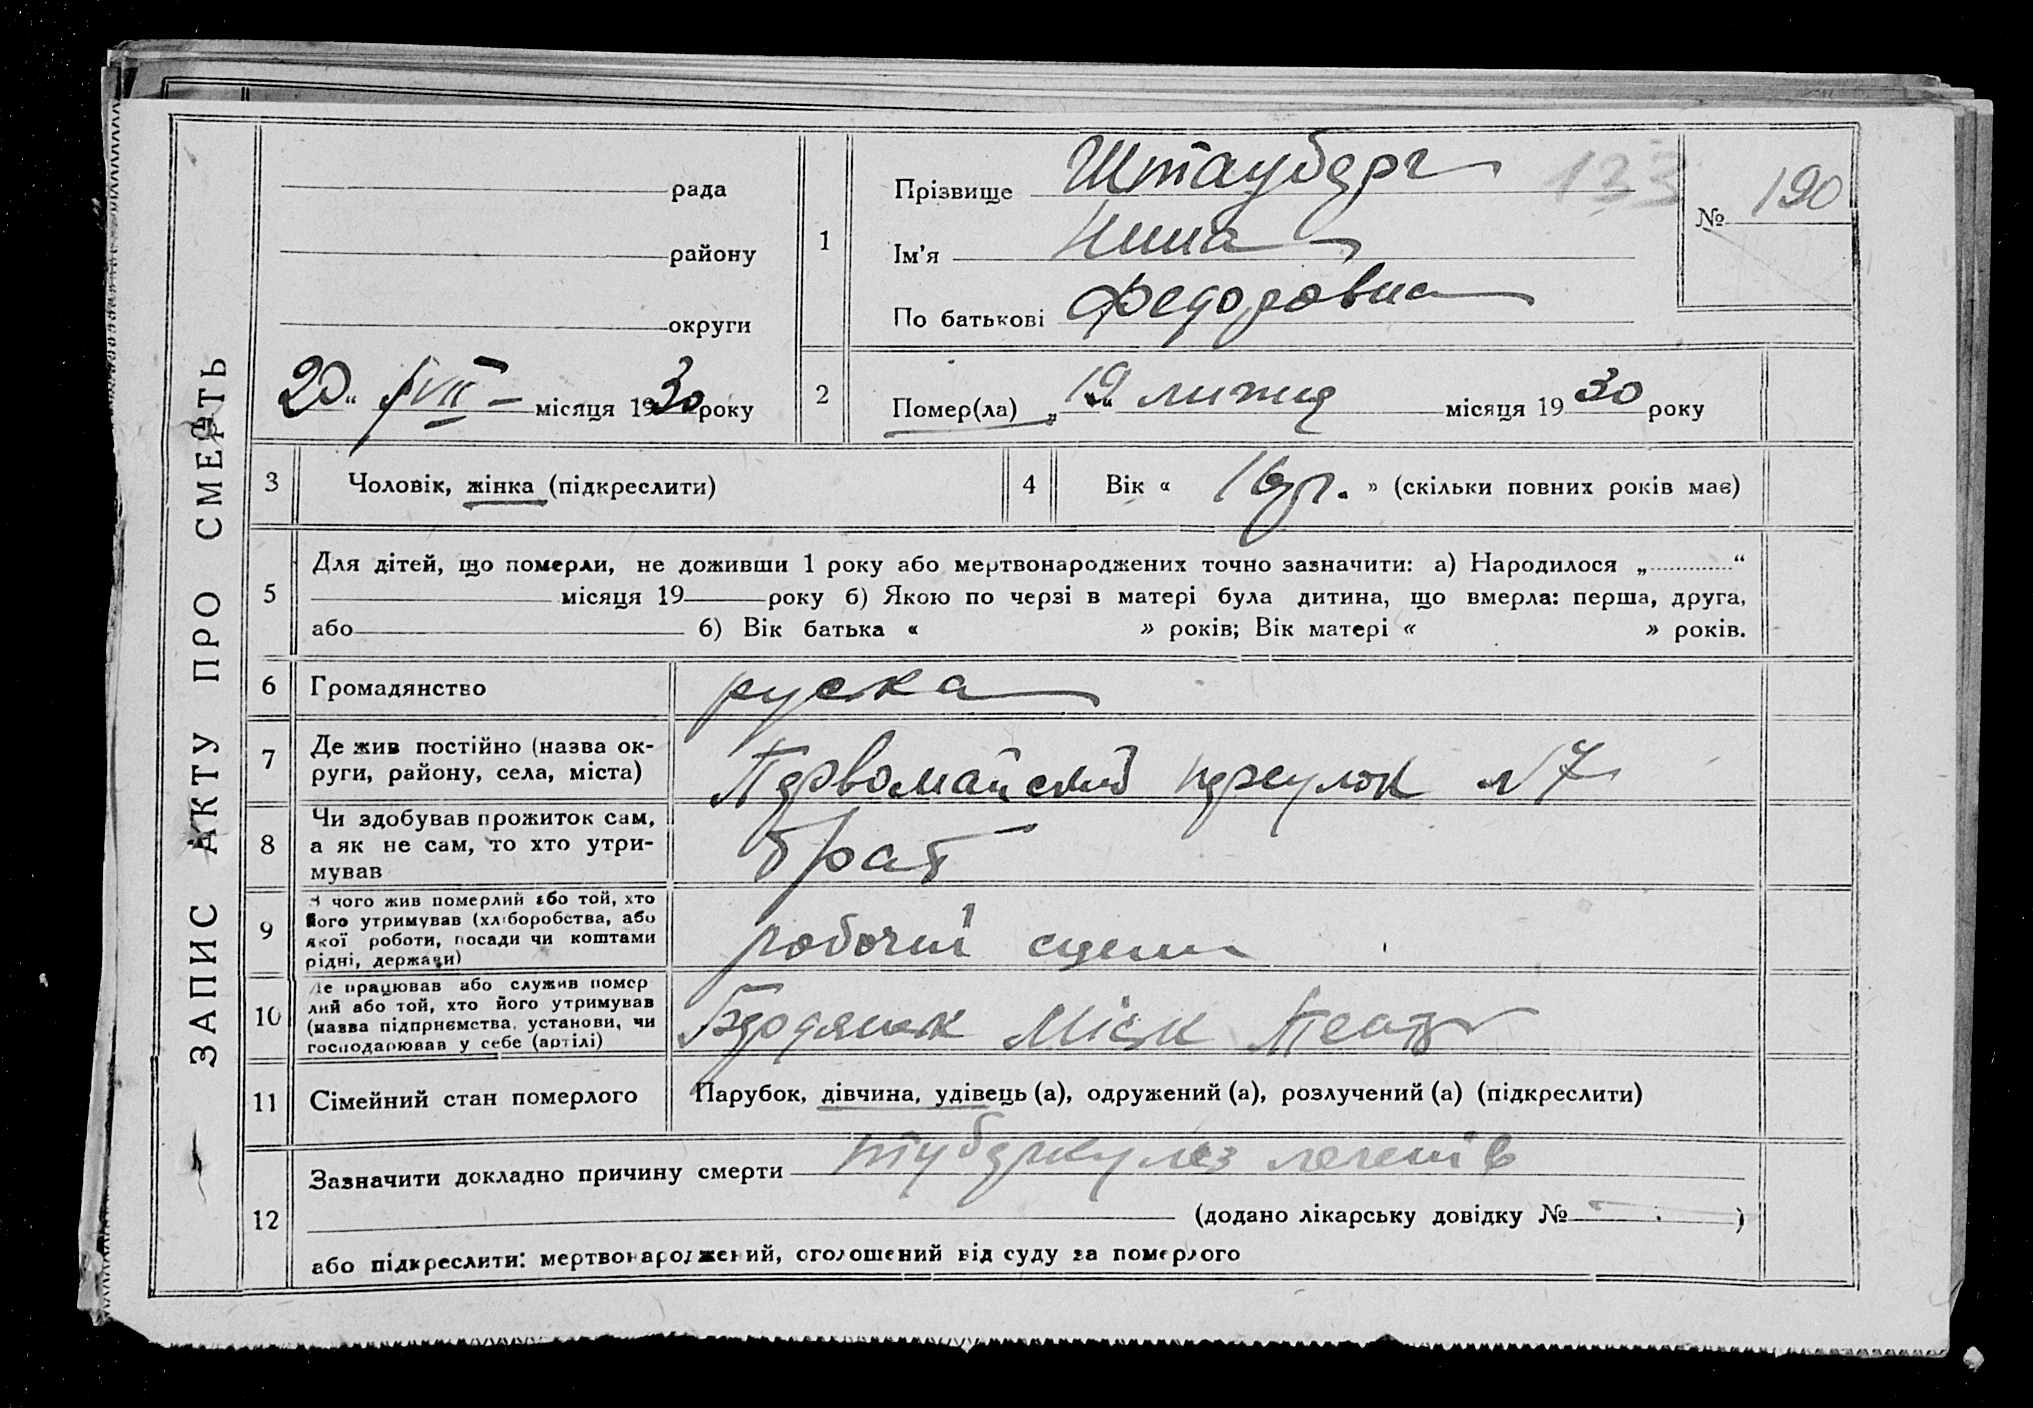 ЗАПИС АКТУ ПРО СМЕРТЬ
рада
району
округи
20 “ VII – місяця 1930 року
1
Прізвище Штауберг
Ім'я Нина
По батькові Федоровна
133
№ 190
2
Помер(ла) „ 19 “ липня місяця 1930 року
3
Чоловік, жінка (підкреслити)
4
Вік « 16 р. » (скільки повних років має)
5
Для дітей, що померли, не доживши 1 року або мертвонароджених точно зазначити: а) Народилося „ “
місяця 19 року б) Якою по черзі в матері була дитина, що вмерла: перша, друга,
або б) Вік батька « » років; Вік матері « » років.
6
Громадянство
руска
7
Де жив постійно (назва ок-
руги, району, села, міста)
Первомайский переулок № 7
8
Чи здобував прожиток сам,
а як не сам, то хто утри-
мував
брат
9
З чого жив померлий або той, хто
його утримував (хліборобства, або
якої роботи, посади чи коштами
рідні, держави)
робочий сцени
10
Де працював або служив помер
лий або той, хто його утримував
(назва підприємства, установи, чи
господарював у себе (артілі)
Бердянськ Міськ Театр
11
Сімейний стан померлого
Парубок, дівчина, удівець (а), одружений (а), розлучений (а) (підкреслити)
12
Зазначити докладно причину смерти туберкульоз легенів
(додано лікарську довідку № )
або підкреслити: мертвонароджений, оголошений від суду за померлого